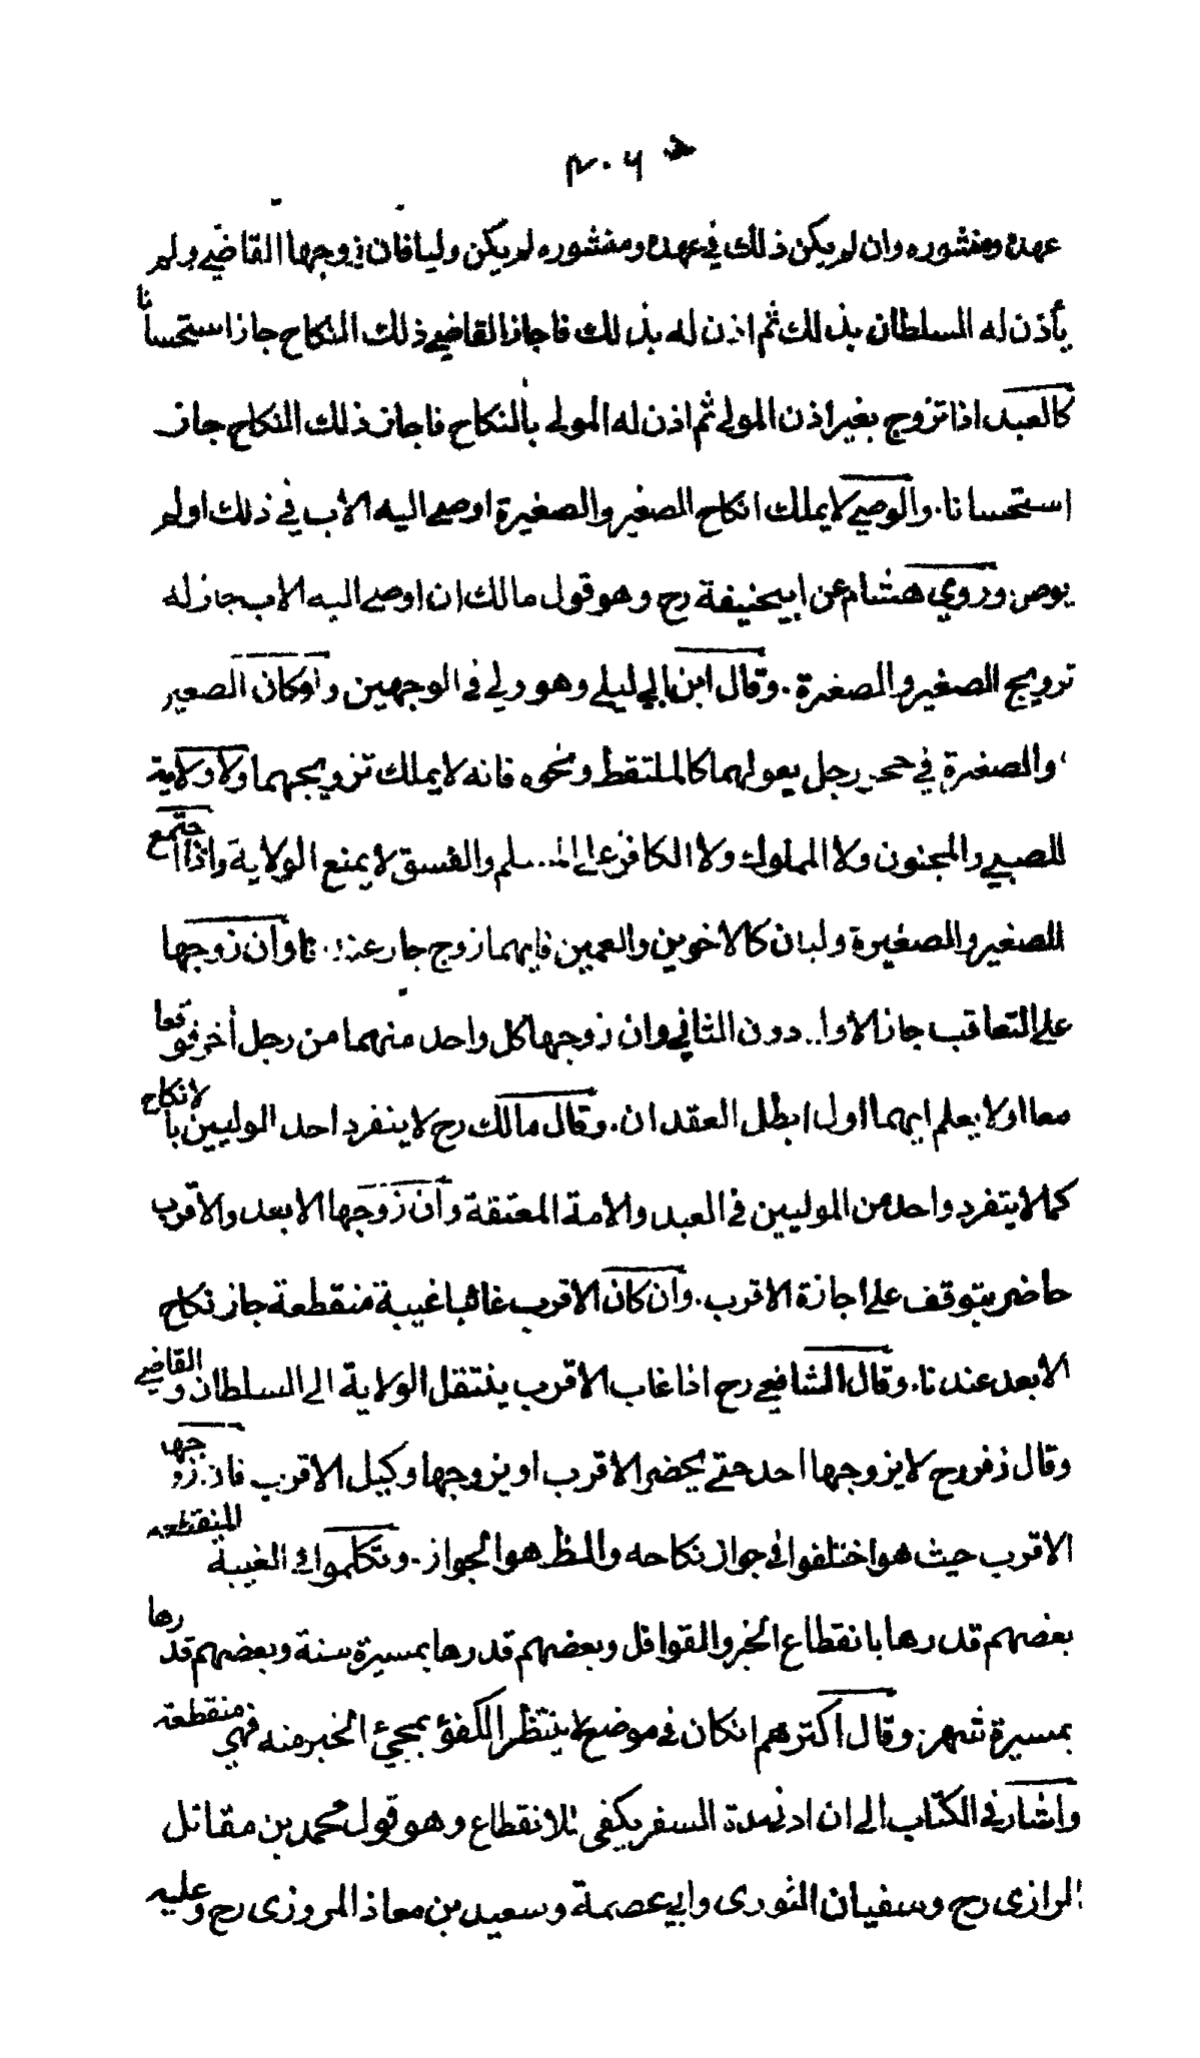 ٣٠٦
عهده ومنشوره وان لم يكن ذلك في عهده ومنشوره لم يكن وليا فان زوجها القاضي ولم
يأذن له السلطان بذلك ثم اذن له بذلك فاجاز القاضي ذلك النكاح جاز استحسانا
كالعبد اذا تزوج بغير اذن المولى ثم اذن له المولي بالنكاح فاجاز ذلك النكاح جاز
استحسانا. والوصي لا يملك انكاح الصغير والصغيرة اوصي اليه الأب في ذلك او لم
يوص. وروي هشام عن ابيحنيفة رح وهو قول مالك ان اوصي اليه الاب جاز له
تزويج الصغير والصغيرة. وقال ابن ابي ليلي وهو ولي في الوجهين ولوكان الصغير
والصغيرة في حجر رجل يعولهما كالملتقط ونحوه فانه لا يملك تزويجهما ولا ولاية
للصبي والمجنون ولا المملوك ولا الكافر علي المسلم والفسق لا يمنع الولاية واذا اجتمع
للصغير والصغيرة وليان كالاخوين والعمين فايهما زوج جاز عندنا وان زوجها
علي التعاقب جاز الاول دون الثاني وان زوجها كل واحد منهما من رجل أخر فوقعا
معا او لا يعلم ايهما اول بطل العقدان. وقال مالك رح لا ينفرد احد الوليين بالانكاح
كما لا يتفرد واحد من الموليين في العبد والأمة المعتقة وان زوجها الابعد والاقرب
حاضر يتوقف علي اجازة الاقرب. وان كان الأقرب غائبا غيبة منقطعة جاز نكاح
الأبعد عندنا. وقال الشافعي رح اذا غاب الاقرب ينتقل الولاية الي السلطان والقاضي
وقال زفر رح لا يزوجها احد حتي يحضر الاقرب او يزوجها وكيل الاقرب فان زوجها
الاقرب حيث هو اختلفوا في جواز نكاحه والظ هو الجواز. وتكلموا في الغيبة المنقطعه
بعضهم قدرها بانقطاع الخبر والقوافل وبعضهم قدرها بمسيرة سنة وبعضهم قدرها
بمسيرة شهر. وقال اكثرهم انكان في موضع لا ينتظر الكفؤ بمجئ الخبر منه فهي منقطعة
واشار في الكتاب الي ان ادني مدة السفر يكفي للانقطاع وهو قول محمد بن مقاتل
الرازى رح وسفيان الثورى وابي عصمة وسعيد بن معاذ المروزى رح وعليه